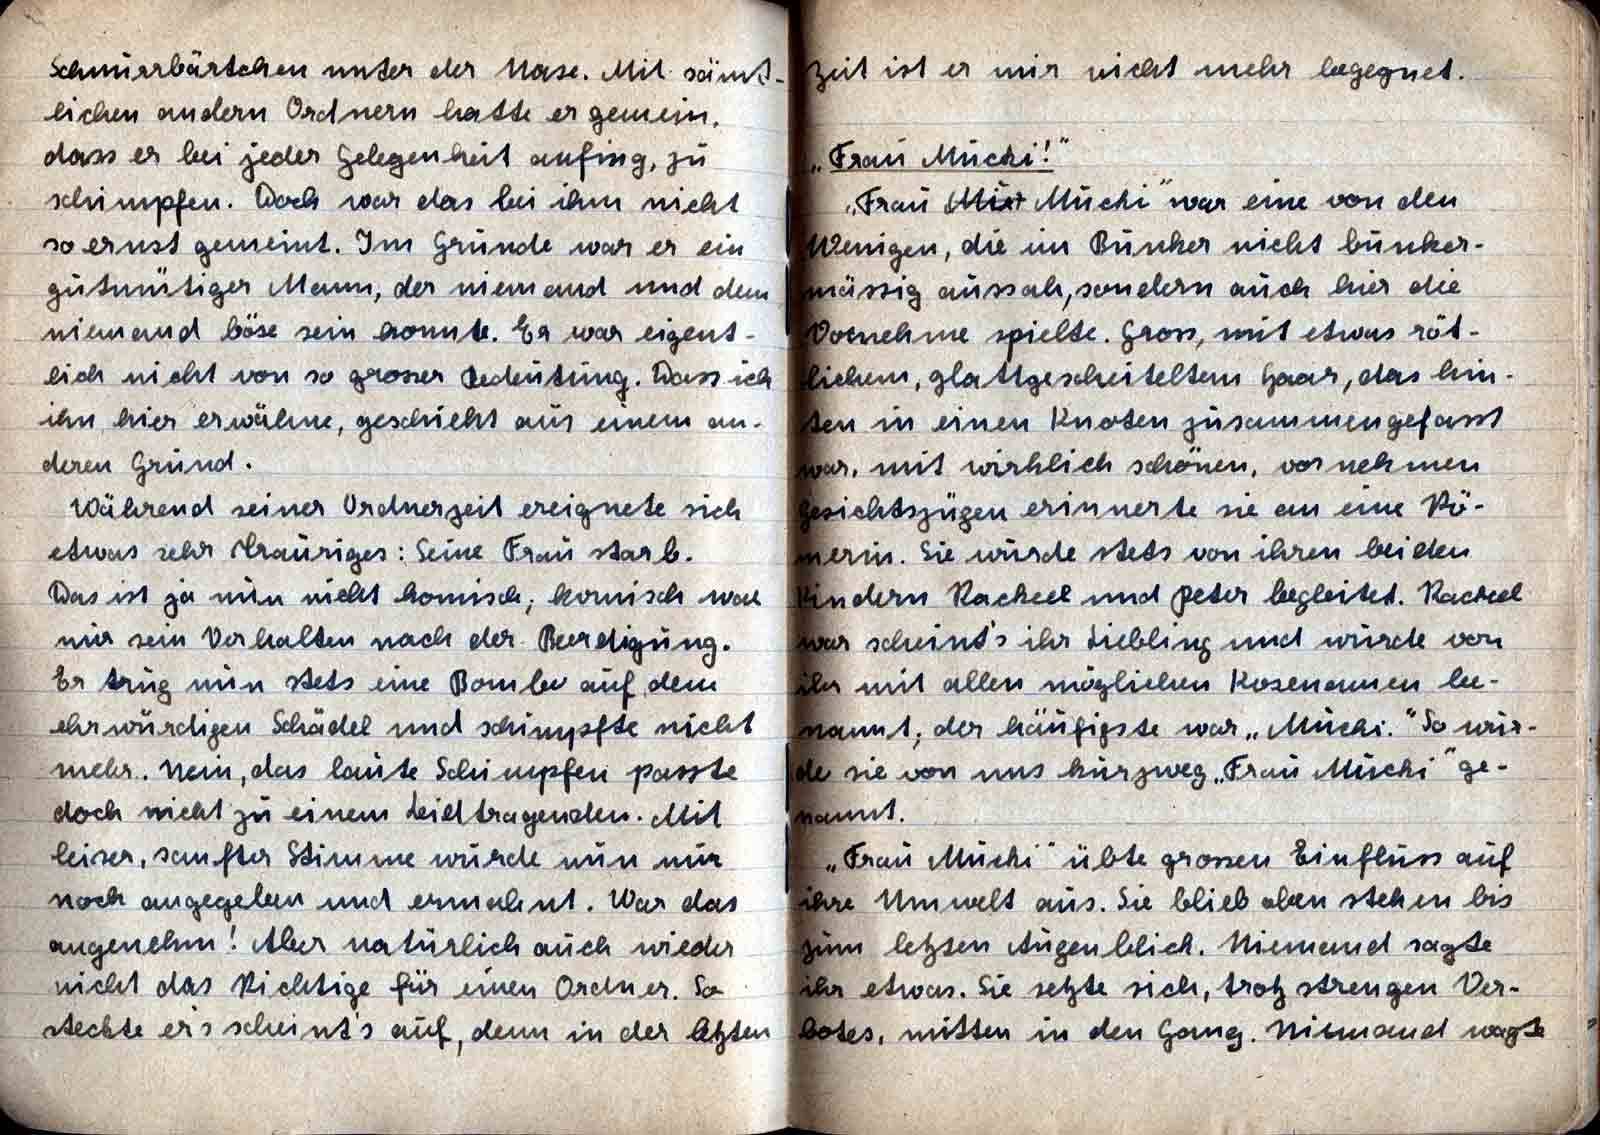 Schnurrbärtchen unter der Nase. Mit sämt-
lichen andern Ordnern hatte er gemein,
dass er bei jeder Gelegenheit anfing, zu
schimpfen. Doch war das bei ihm nicht
so ernst gemeint. Im Grunde war er ein
gutmütiger Mann, der niemand und dem
niemand böse sein konnte. Er war eigent-
lich nicht von so grosser Bedeutung. Dass ich
ihn hier erwähne, geschieht aus einem an-
deren Grund.
Während seiner Ordnerzeit ereignete sich
etwas sehr Trauriges: Seine Frau starb.
Das ist ja nun nicht komisch, komisch war
nur sein Verhalten nach der Beerdigung.
Er trug nun stets eine Bombe auf dem
ehrwürdigen Schädel und schimpfte nicht
mehr. Nein, das laute Schimpfen passte
doch nicht zu einem Leidtragenden. Mit
leiser, sanfter Stimme wurde nun nur
noch angegeben und ermahnt. War das
angenehm! Aber natürlich auch wieder
nicht das Richtige für einen Ordner. So
steckte er's scheint's auf, denn in der letzten
Zeit ist er mir nicht mehr begegnet.
„Frau Muchi!“
„Frau Muchi“ war eine von den
Wenigen, die im Bunker nicht bunker-
mässig aussah, sondern auch hier die
Vornehme spielte. Gross, mit etwas röt-
lichem, glattgescheiteltem Haar, das hin-
ten in einen Knoten zusammengefasst
war, mit wirklich schönen, vornehmen
Gesichtszügen erinnerte sie an eine Rö-
merin. Sie wurde stets von ihren beiden
Kindern Racheel und Peter begleitet. Racheel
war scheint's ihr Liebling und wurde von
ihr mit allen möglichen Kosenamen be-
nannt, der häufigste war „Muchi.“ So wur-
de sie von uns kurzweg „Frau Muchi“ ge-
nannt.
„Frau Muchi“ übte grossen Einfluss auf
ihre Umwelt aus. Sie blieb oben stehen bis
zum letzten Augenblick. Niemand sagte
ihr etwas. Sie setzte sich, trotz strengen Ver-
botes, mitten in den Gang. Niemand wagte